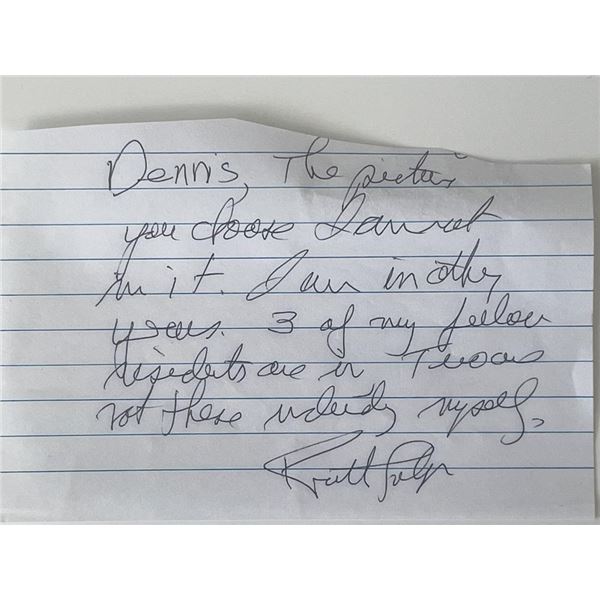 Dennis, The picture
you choose I am not
in it. I am in other
years. 3 of my fellow
residents are in
not there including myself.